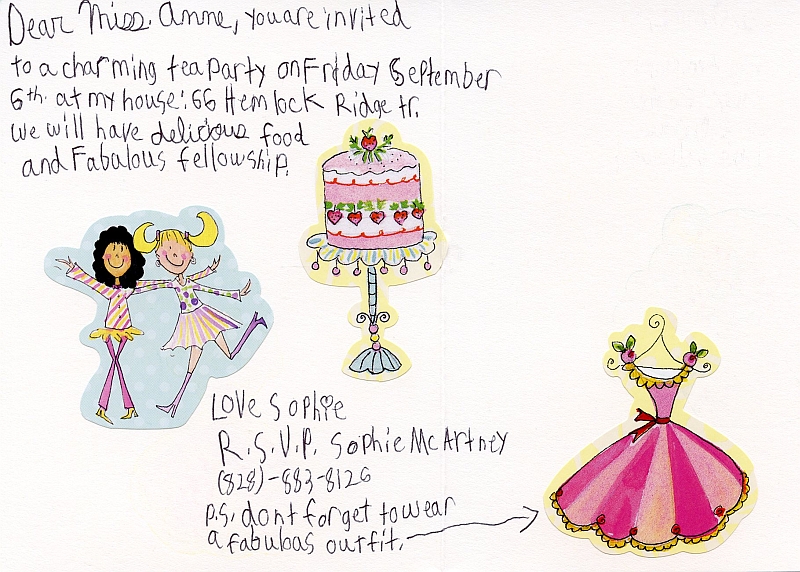 Dear Miss. Anne, you are invited
to a charming tea party on Friday September
6th. at my house: 66 Hemlock Ridge tr.
we will have delicious food
and Fabulous fellowship.
Love Sophie
R.S.V.P. Sophie McArtney
(828)-883-8126
p.s. dont forget to wear
a fabulous outfit.